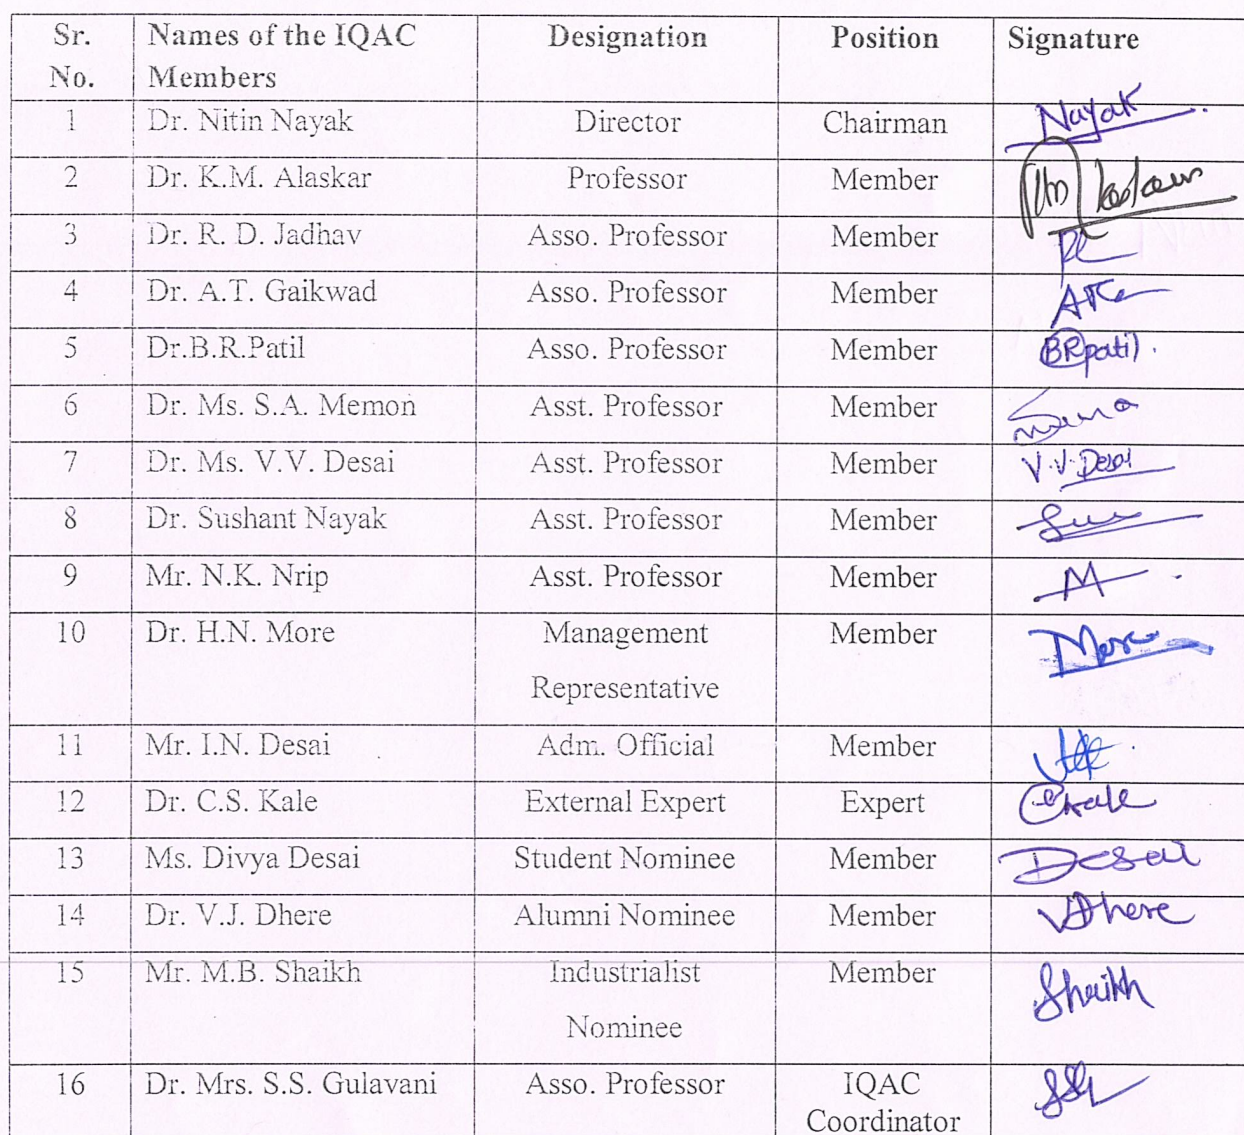 Sr. Names of the IQAC Designation Position Signature
No. Members
1 Dr. Nitin Nayak Director Chairman Nayak
2 Dr. K.M. Alaskar Professor Member
3 Dr. R. D. Jadhav Asso. Professor Member
4 Dr. A.T. Gaikwad Asso. Professor Member
5 Dr.B.R.Patil Asso. Professor Member BRpatil.
6 Dr. Ms. S.A. Memon Asst. Professor Member
7 Dr. Ms. V.V. Desai Asst. Professor Member V.V.Desai
8 Dr. Sushant Nayak Asst. Professor Member
9 Mr. N.K. Nrip Asst. Professor Member
10 Dr. H.N. More Management Member More
Representative
11 Mr. I.N. Desai Adm. Official Member
12 Dr. C.S. Kale External Expert Expert CKale
13 Ms. Divya Desai Student Nominee Member Desai
14 Dr. V.J. Dhere Alumni Nominee Member VDhere
15 Mr. M.B. Shaikh Industrialist Member Shaikh
Nominee
16 Dr. Mrs. S.S. Gulavani Asso. Professor IQAC
Coordinator